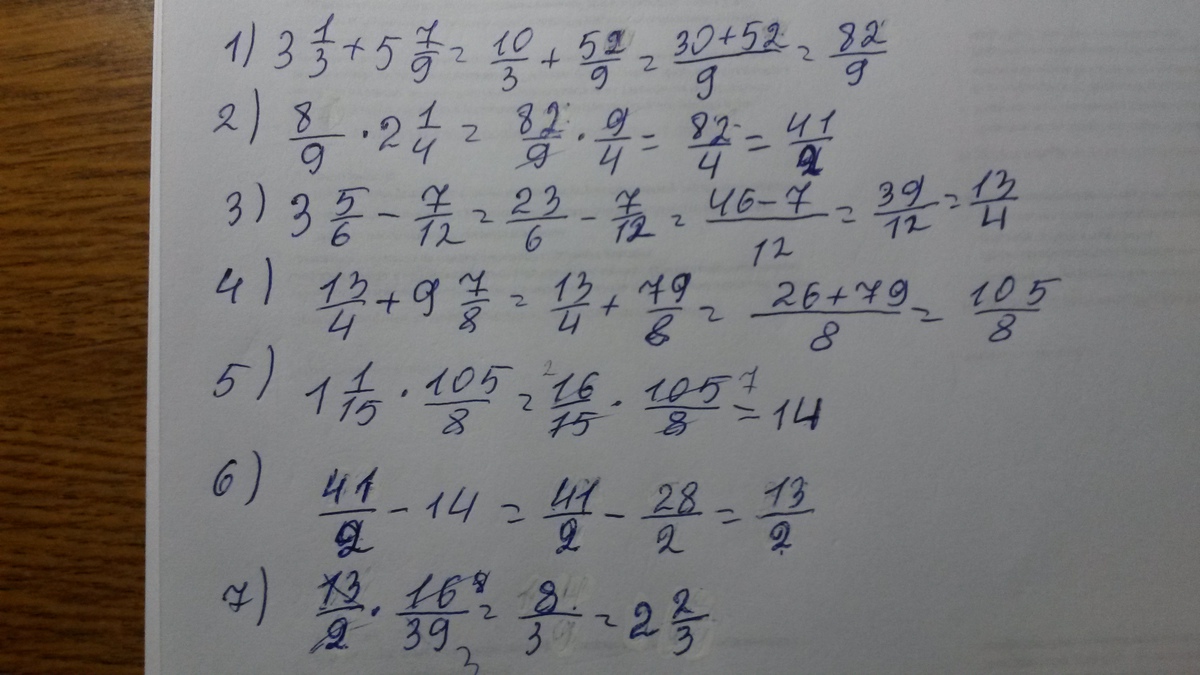 1) 3 1/3 + 5 7/9 = 10/3 + 52/9 = 30+52/9 = 82/9
2) 8/9 · 2 1/4 = 82/9 · 9/4 = 82/4 = 41/2
3) 3 5/6 - 7/12 = 23/6 - 7/12 = 46-7/12 = 39/12 = 13/4
4) 13/4 + 9 7/8 = 13/4 + 79/8 = 26+79/8 = 105/8
5) 1 1/15 · 105/8 = 2 16/15 · 105/8 7 = 14
6) 41/2 - 14 = 41/2 - 28/2 = 13/2
7) 13/2 · 16/39 8 3 = 8/3 = 2 2/3